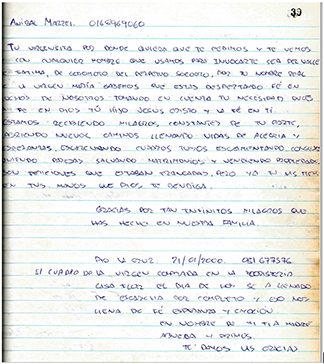 39
ANIBAL MAZZEI. 0168969060
TU VIRGENCITA POR DONDE QUIERA QUE TE PEDIMOS Y TE VEMOS
CON CUALQUIER NOMBRE QUE USAMOS PARA INVOCARTE SEA DEL VALLE
FATIMA, DE COROMOTO DEL PERPETUO SOCORRO, POR TU NOMBRE REAL
LA VIRGEN MARIA SABEMOS QUE ESTAS DESPERTANDO FÉ EN
MUCHOS DE NOSOTROS TOMANDO EN CUENTA TU NECESIDAD
FE EN DIOS TÚ HIJO JESUS CRISTO Y LA FÉ EN TI
ESTAMOS RECIBIENDO MILAGROS CONSTANTES DE TU PARTE,
ABRIENDO NUEVOS CAMINOS LLENANDO VIDAS DE ALEGRIA Y
ESPERANZAS, CUADROS TUYOS
SALVANDO MATRIMONIOS Y VENDIENDO PROPIEDADES
SON PETICIONES QUE ESTABAN TRANCADAS, PERO YA TU LAS TIENES
EN TUS MANOS QUE DIOS TE BENDIGA.
GRACIAS POR TAN INFINITOS MILAGROS QUE
HAS HECHO EN NUESTRA FAMILIA.
LA CRUZ. 21/01/2000. 081 677576
EL CUADRO DE LA VIRGEN COMPRADA EN LA
CASA EL DIA DE HOY SE A LLENADO
DE ESCARCHA POR COMPLETO Y NOS
LLENA DE FÉ ESPERANZA Y EMOCION
EN NOMBRE DE MI TIA MADRE
ABUELA Y PRIMOS.
TE DAMOS LAS GRACIAS